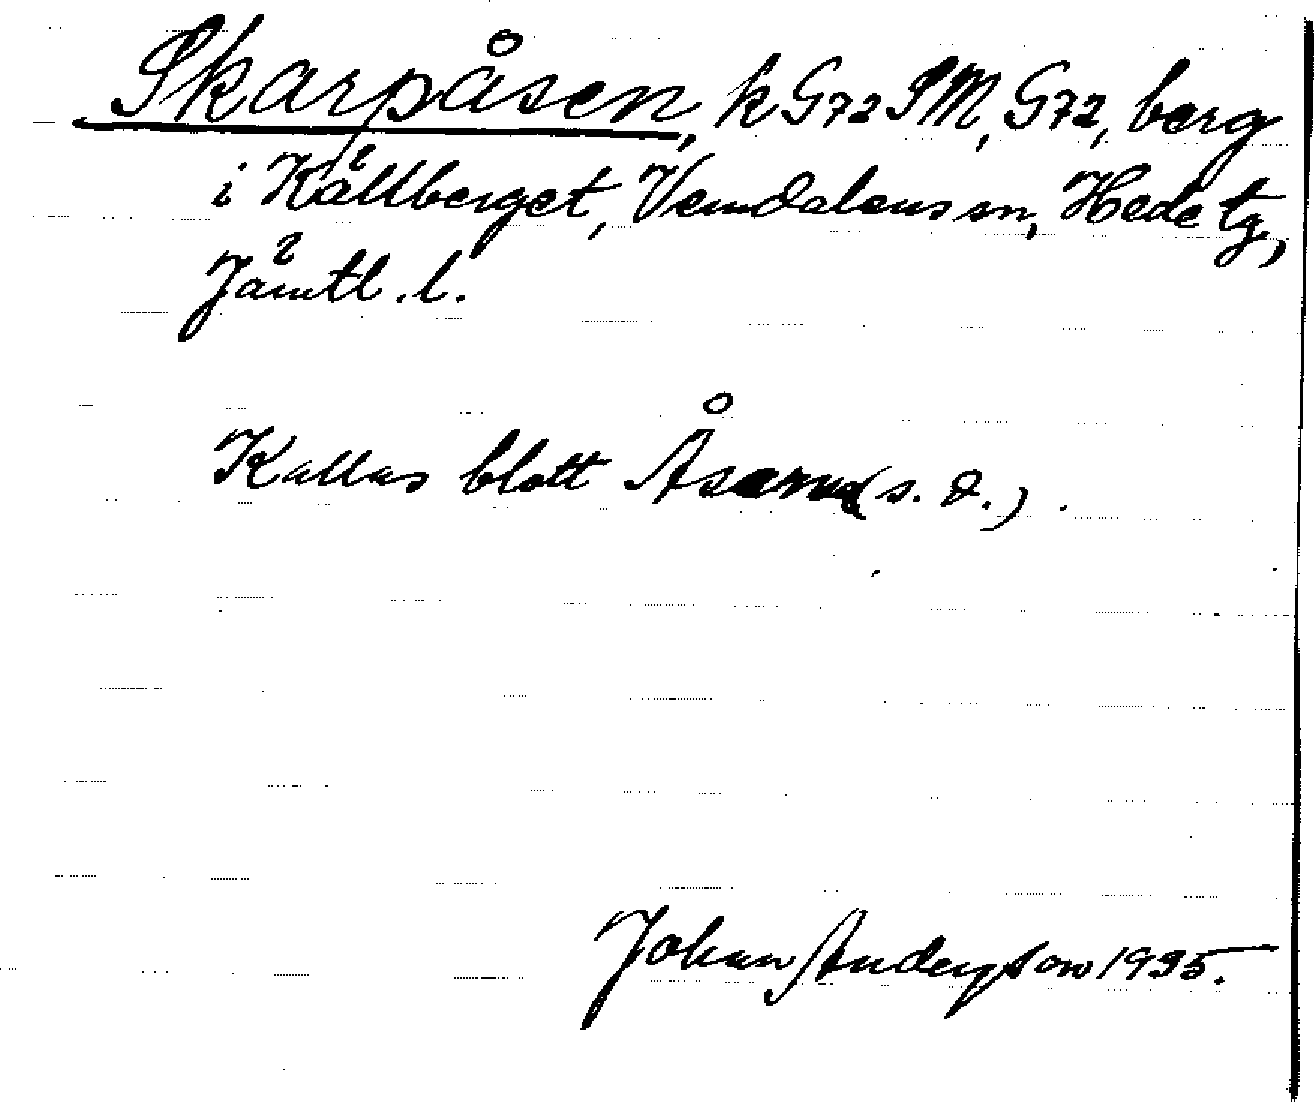 Skarpåsen, k G72 SM, G72, berg
i Källberget, Vemdalens sn, Hede tg,
Jämtl. l.
Kallas blott Åsarna (s. d.).
Johan Anderson 1935.